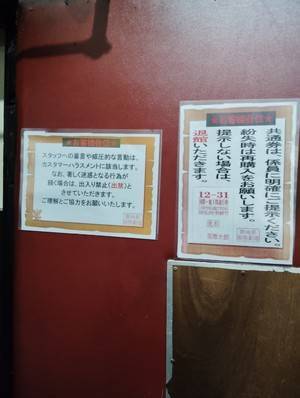 ★お客様各位★
スタッフへの暴言や威圧的な言動は、
カスタマーハラスメントに該当します。
なお、著しく迷惑となる行為が
続く場合は、出入り禁止(出禁)と
させていただきます。
ご理解とご協力をお願いいたします。
★お客様各位★
共通券は、係員に明確にご提示ください。
紛失時は再購入をお願いします。
提示しない場合は、
退館いただきます。
12-31